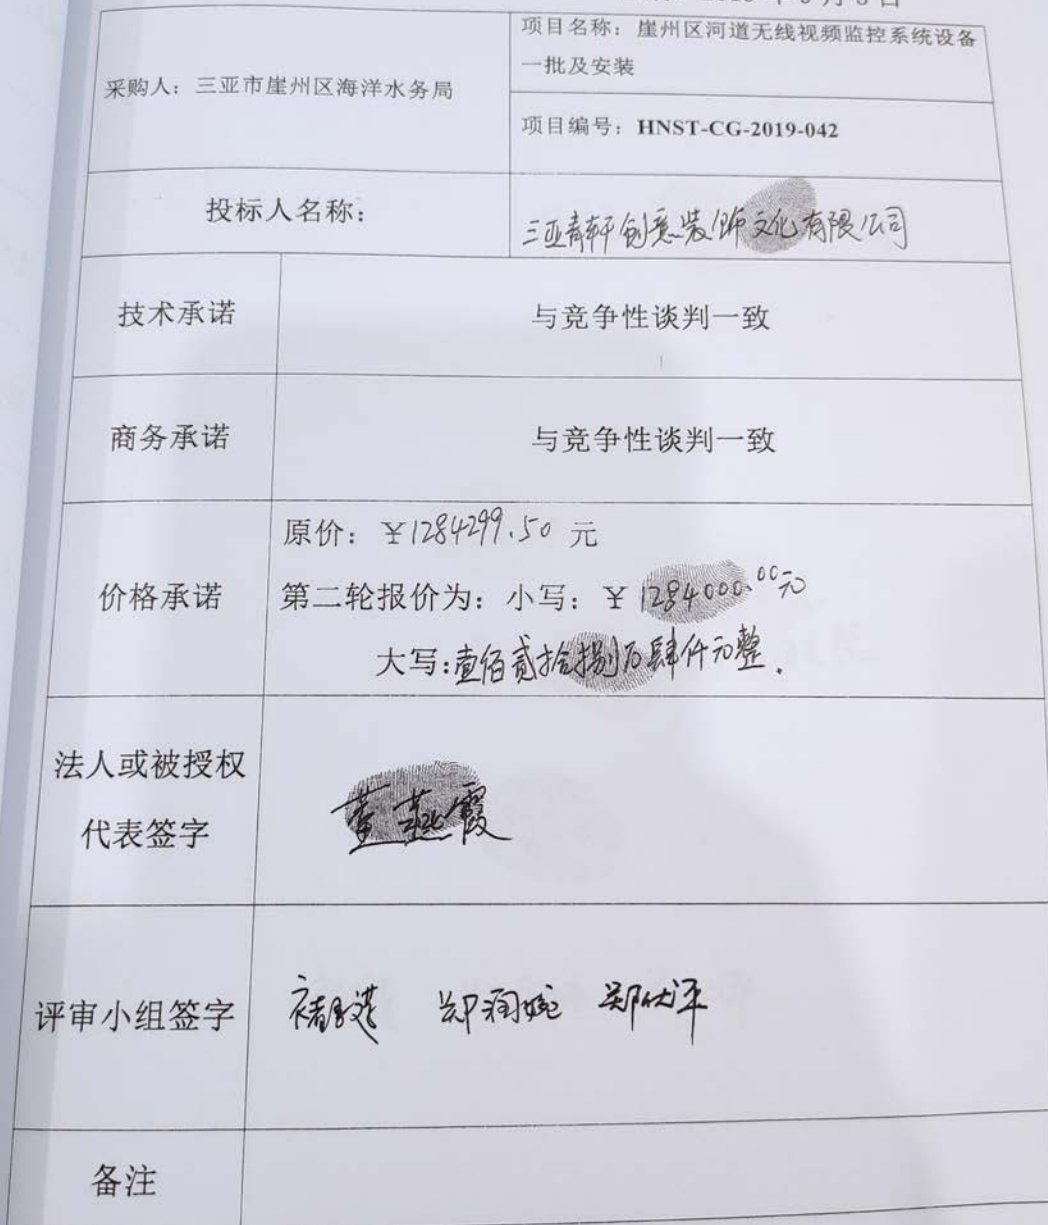 采购人：三亚市崖州区海洋水务局
项目名称：崖州区河道无线视频监控系统设备
一批及安装
项目编号：HNST-CG-2019-042
投标人名称：
三亚青轩创意装饰文化有限公司
技术承诺
与竞争性谈判一致
商务承诺
与竞争性谈判一致
价格承诺
原价：￥1284299.50 元
第二轮报价为：小写：￥1284000.00元
大写：壹佰贰拾捌万肆仟元整.
法人或被授权
代表签字
董燕霞
评审小组签字
郑润婉
备注